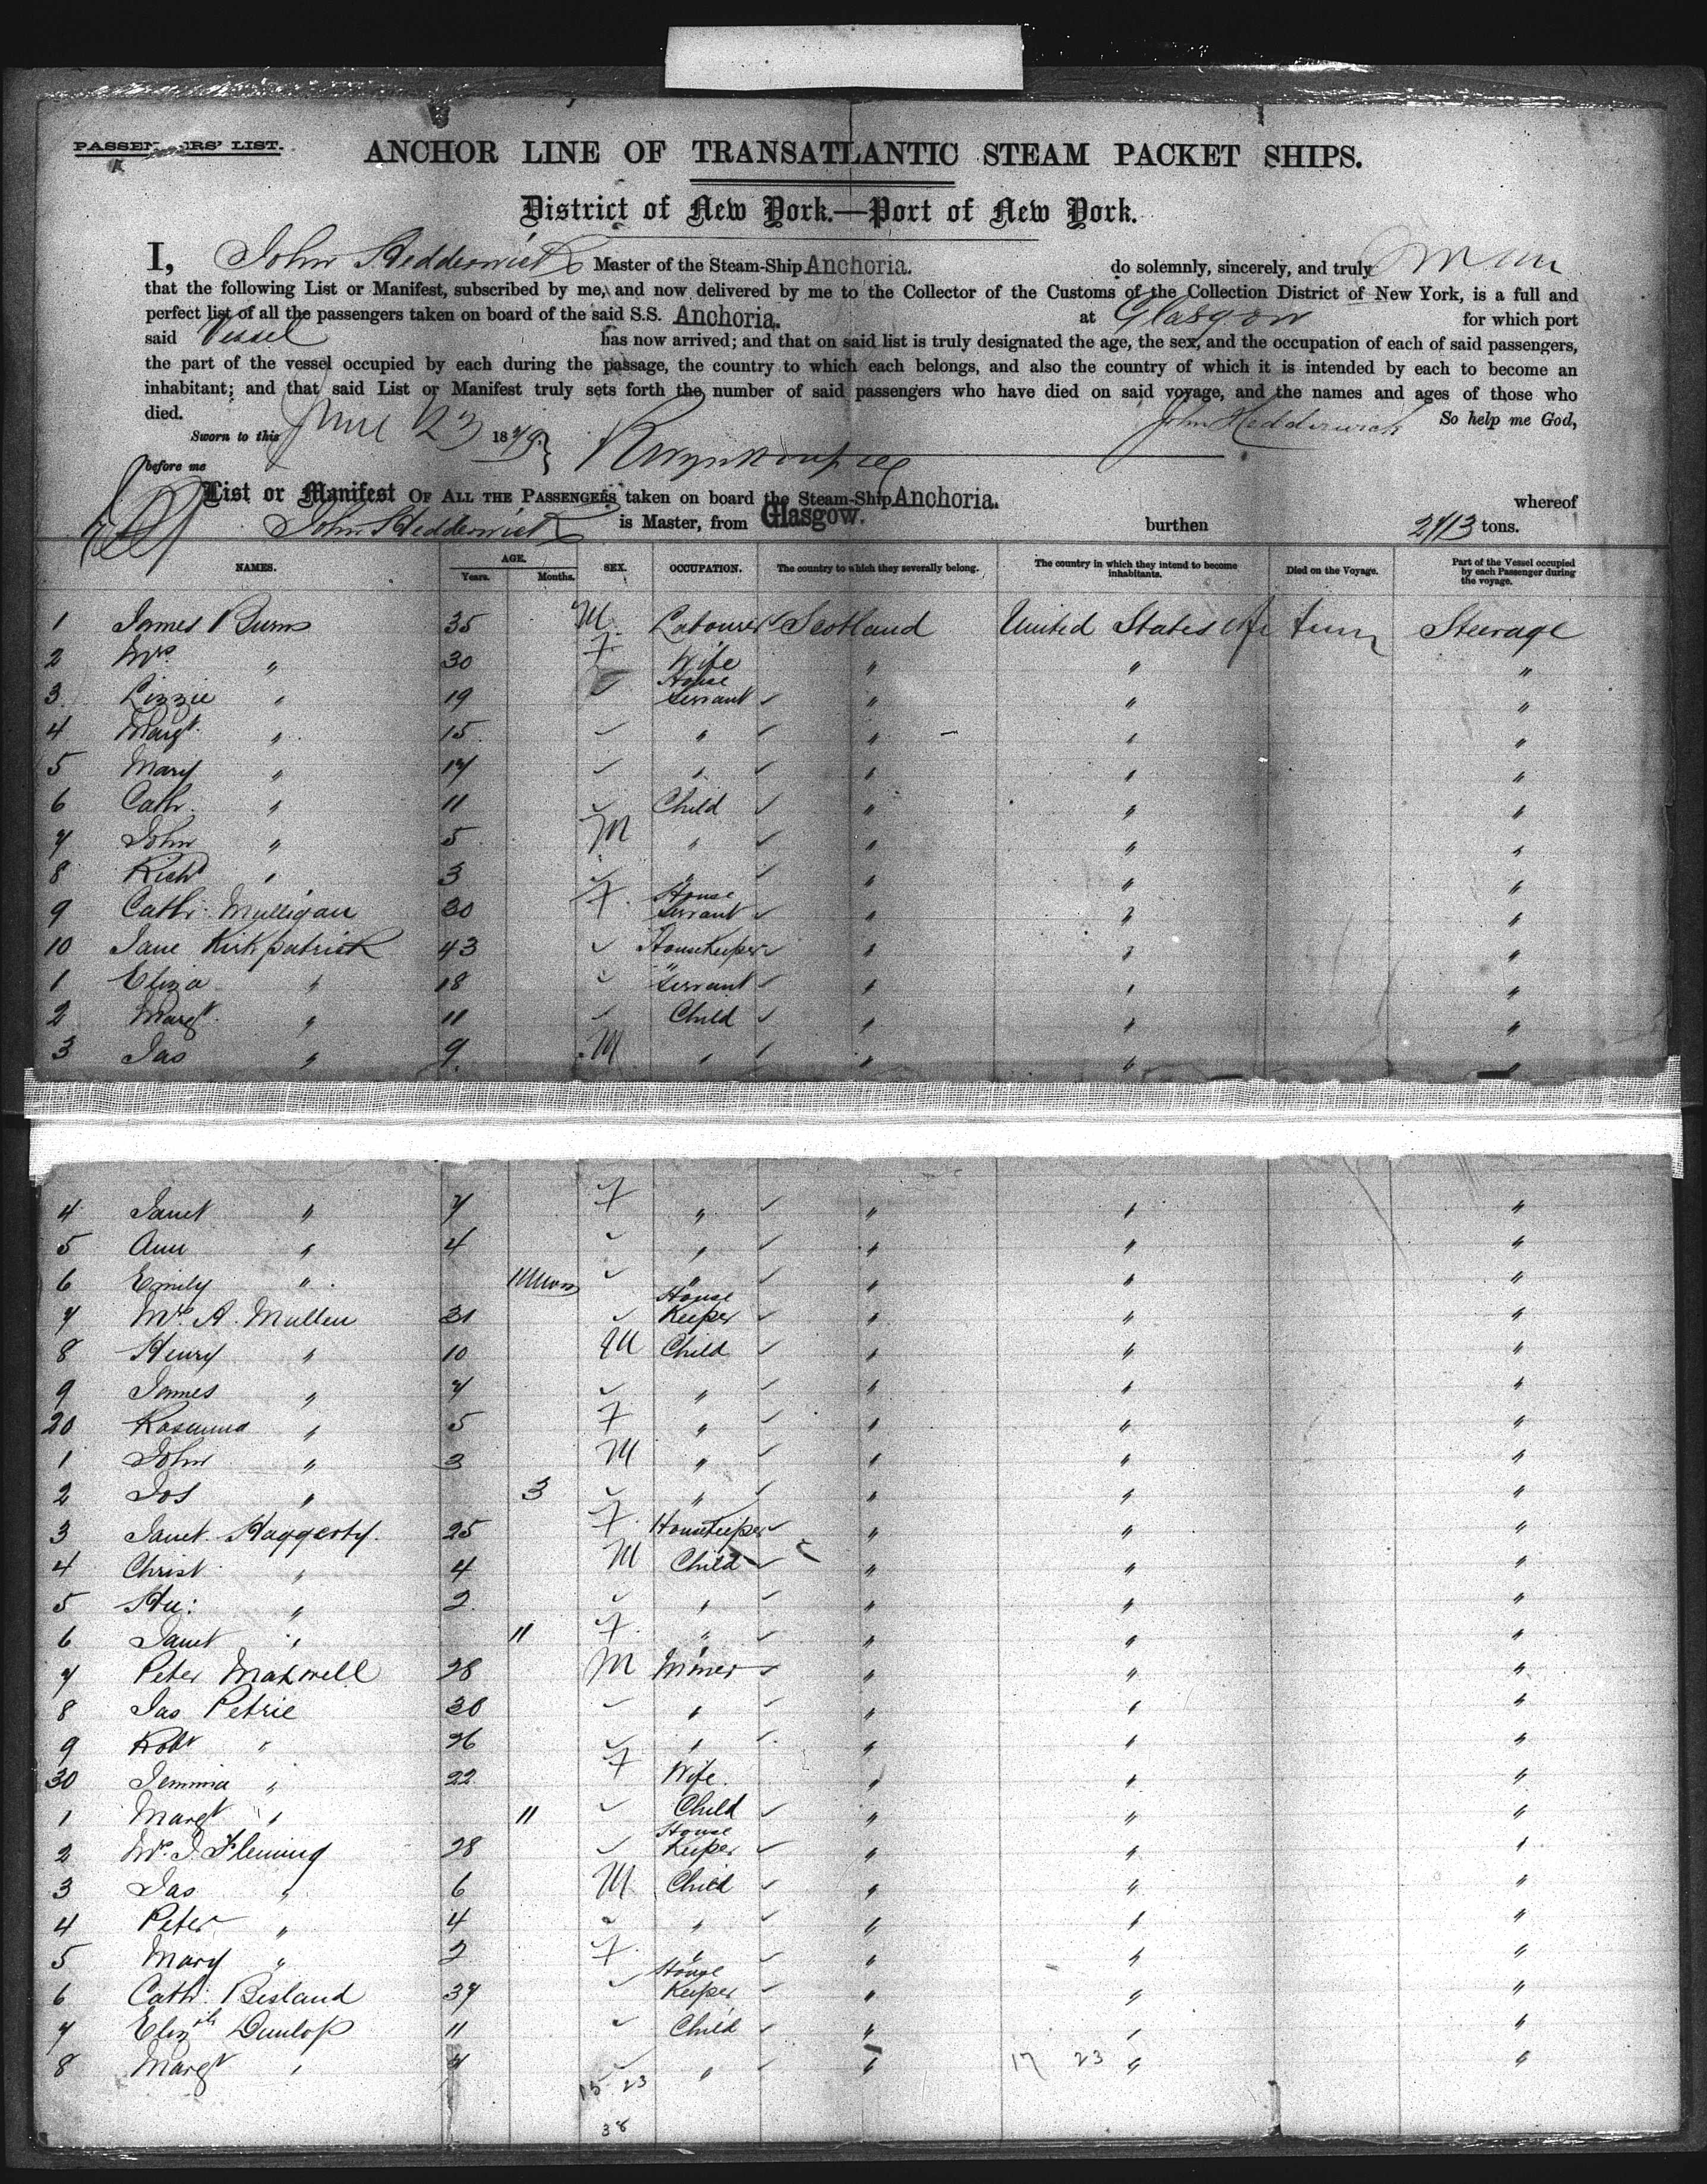 PASSENGERS' LIST.
ANCHOR LINE OF TRANSATLANTIC STEAM PACKET SHIPS.
District of New York.—Port of New York.
I, John Hedderwick Master of the Steam-Ship Anchoria. do solemnly, sincerely, and truly
that the following List or Manifest, subscribed by me, and now delivered by me to the Collector of the Customs of the Collection District of New York, is a full and
perfect list of all the passengers taken on board of the said S.S. Anchoria. at Glasgow for which port
said Vessel has now arrived; and that on said list is truly designated the age, the sex, and the occupation of each of said passengers,
the part of the vessel occupied by each during the passage, the country to which each belongs, and also the country of which it is intended by each to become an
inhabitant; and that said List or Manifest truly sets forth the number of said passengers who have died on said voyage, and the names and ages of those who
died. So help me God,
Sworn to this June 23 1879 John Hedderwick
before me
List or Manifest OF ALL THE PASSENGERS taken on board the Steam-Ship Anchoria. whereof
John Hedderwick is Master, from Glasgow. burthen 2713 tons.
NAMES. AGE. Years. Months. SEX. OCCUPATION. The country to which they severally belong. The country in which they intend to become inhabitants. Died on the Voyage. Part of the Vessel occupied by each Passenger during the voyage.
1 James Burns 35 M Labourer Scotland United States Steerage
2 Mrs " 30 F Wife " " "
3 Lizzie " 19 ✓ House Servant ✓ " " "
4 Margt " 15 ✓ " ✓ " " "
5 Mary " 17 ✓ " ✓ " " "
6 Cath. " 11 ✓ Child ✓ " " "
7 John " 5 M " ✓ " " "
8 Richd " 3 ✓ " ✓ " " "
9 Cath: Mulligan 30 F. House Servant ✓ " " "
10 Jane Kirkpatrick 43 ✓ Housekeeper ✓ " " "
1 Eliza " 18 ✓ " Servant ✓ " " "
2 Margt. " 11 ✓ Child ✓ " " "
3 Jas " 9 M " ✓ " " "
4 Janet " 7 F " ✓ " " "
5 Ann " 4 ✓ " ✓ " " "
6 Emily " 11 Mos ✓ " ✓ " " "
7 Mrs A. Mullen 31 ✓ House Keeper ✓ " " "
8 Henry " 10 M Child ✓ " " "
9 James " 7 ✓ " ✓ " " "
20 Rosanna " 5 F " ✓ " " "
1 John " 3 M " ✓ " " "
2 Jos " 3 ✓ " ✓ " " "
3 Janet Haggerty 25 F. Housekeeper ✓ " " "
4 Christ " 4 M Child ✓ " " "
5 Hu: " 2 ✓ " ✓ " " "
6 Janet " 11 F. " ✓ " " "
7 Peter Maxwell 28 M Miner ✓ " " "
8 Jas Petrie 30 ✓ " ✓ " " "
9 Robt " 26 ✓ " ✓ " " "
30 Jemima " 22 F Wife. " " "
1 Margt " 11 ✓ Child ✓ " " "
2 Mrs J. Fleming 28 ✓ House Keeper ✓ " " "
3 Jas " 6 M Child ✓ " " "
4 Peter " 4 ✓ " ✓ " " "
5 Mary " 2 F. " ✓ " " "
6 Cath: Bisland 37 ✓ House Keeper ✓ " " "
7 Elizth Dunlop 11 ✓ Child ✓ " " "
8 Margt " 7 ✓ " ✓ " " "
17 23
15 23
38